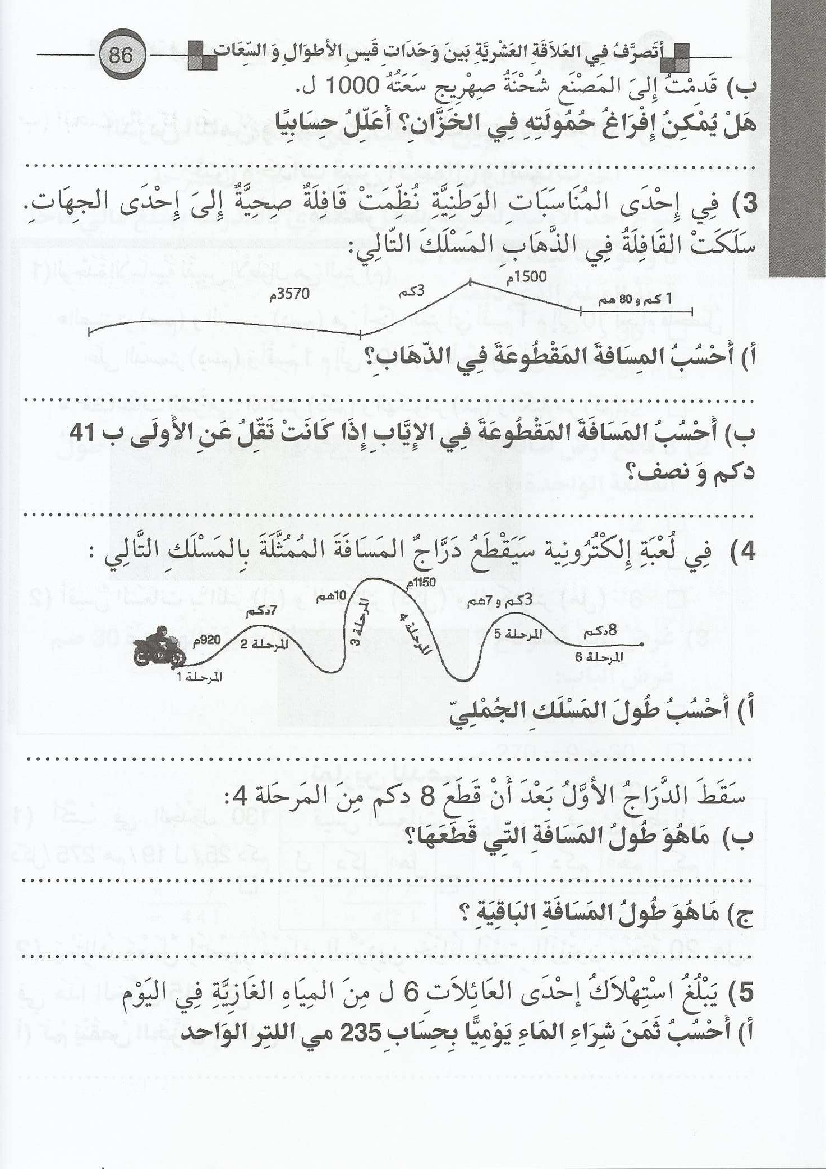 أتصرَّفُ فِي العَلاَقَةِ العَشْرِيَّةِ بَيْنَ وَحَدَاتِ قَيْسِ الأطْوَالِ وَ السّعَاتِ 86
ب) قَدِمْتُ إِلَى المَصْنَعِ شُحْنَةُ صِهْرِيجٍ سَعَتُهُ 1000 ل.
هَلْ يُمْكِنُ إِفْرَاغُ حُمُولَتِهِ فِي الخَزَّانِ؟ أعَلّلُ حِسَابِيًّا
3) فِي إِحْدَى المُنَاسَبَاتِ الوَطَنِيَّةِ نُظّمَتْ قَافِلَةٌ صِحِيَّةٌ إِلَى إِحْدَى الجِهَاتِ.
سَلَكَتْ القَافِلَةُ فِي الذَّهَابِ المَسْلَكَ التّالِي:
3570م 3كم 1500م 1 كم و 80 هم
أ) أحْسُبُ المِسَافَةَ المَقْطُوعَةَ فِي الذّهَابِ؟
ب) أحْسُبُ المَسَافَةَ المَقْطُوعَةَ فِي الإِيَّابِ إِذَا كَانَتْ تَقَلُّ عَنِ الأولَى ب 41
دكم وَ نصف؟
4) فِي لُعْبَةٍ إِلكْتُرُونِية سَيَقْطَعُ دَرَّاجٌ المَسَافَةَ المُمَثَّلَةَ بِالمَسْلَكِ التَّالِي :
920م 7دكم 10هم 1150م 3كم و 7هم 8دكم
المرحلة 1 المرحلة 2 المرحلة 3 المرحلة 4 المرحلة 5 المرحلة 6
أ) أحْسُبُ طُولَ المَسْلَكِ الجُمْلِيّ
سَقَطَ الدَّرَاجُ الأوَّلُ بَعْدَ أنْ قَطَعَ 8 دكم مِنَ المَرحَلة 4:
ب) مَاهُوَ طُولُ المَسَافَةِ التّي قَطَعَهَا؟
ج) مَاهُوَ طُولُ المَسَافَةِ البَاقِيَةِ ؟
5) يَبْلُغُ اسْتِهْلاَكُ إحْدَى العَائِلاَتِ 6 ل مِنَ المِيَاهِ الغَازِيَّةِ فِي اليَوْمِ
أ) أحْسُبُ ثَمَنَ شِرَاءِ المَاءِ يَوْمِيًّا بِحِسَابِ 235 مي اللتر الوَاحد